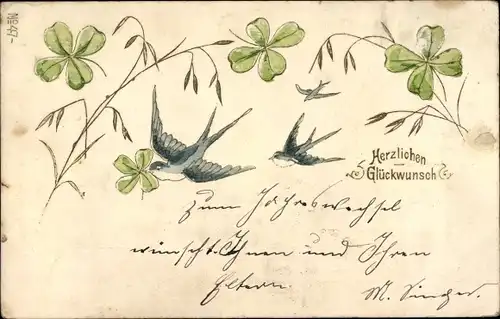 Herzlichen
Glückwunsch
Zum Jahreswechsel
wünscht Ihnen und Ihren
Eltern.
M. Singer.